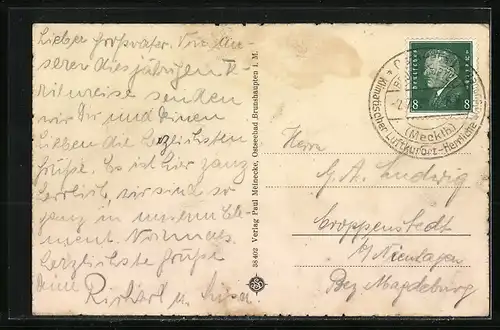 Lieber Großvater. Von un-
serer diesjährigen
reise senden
wir Dir und
Lieben die herzlichsten
Grüße. Es ist hier ganz
herrlich, wir sind so
ganz in unserem Ele-
ment. Nochmals
herzlichste Grüße
Deine Richard u.
38402 Verlag Paul Meinecke, Ostseebad Brunshaupten i. M.
Deutsches Reich
8 8
(Mecklb)
Klimatischer Luftkurort - Herrliche
Herrn
G. A. Ludwig
Croppenstedt
b/ Nienhagen
Bez. Magdeburg